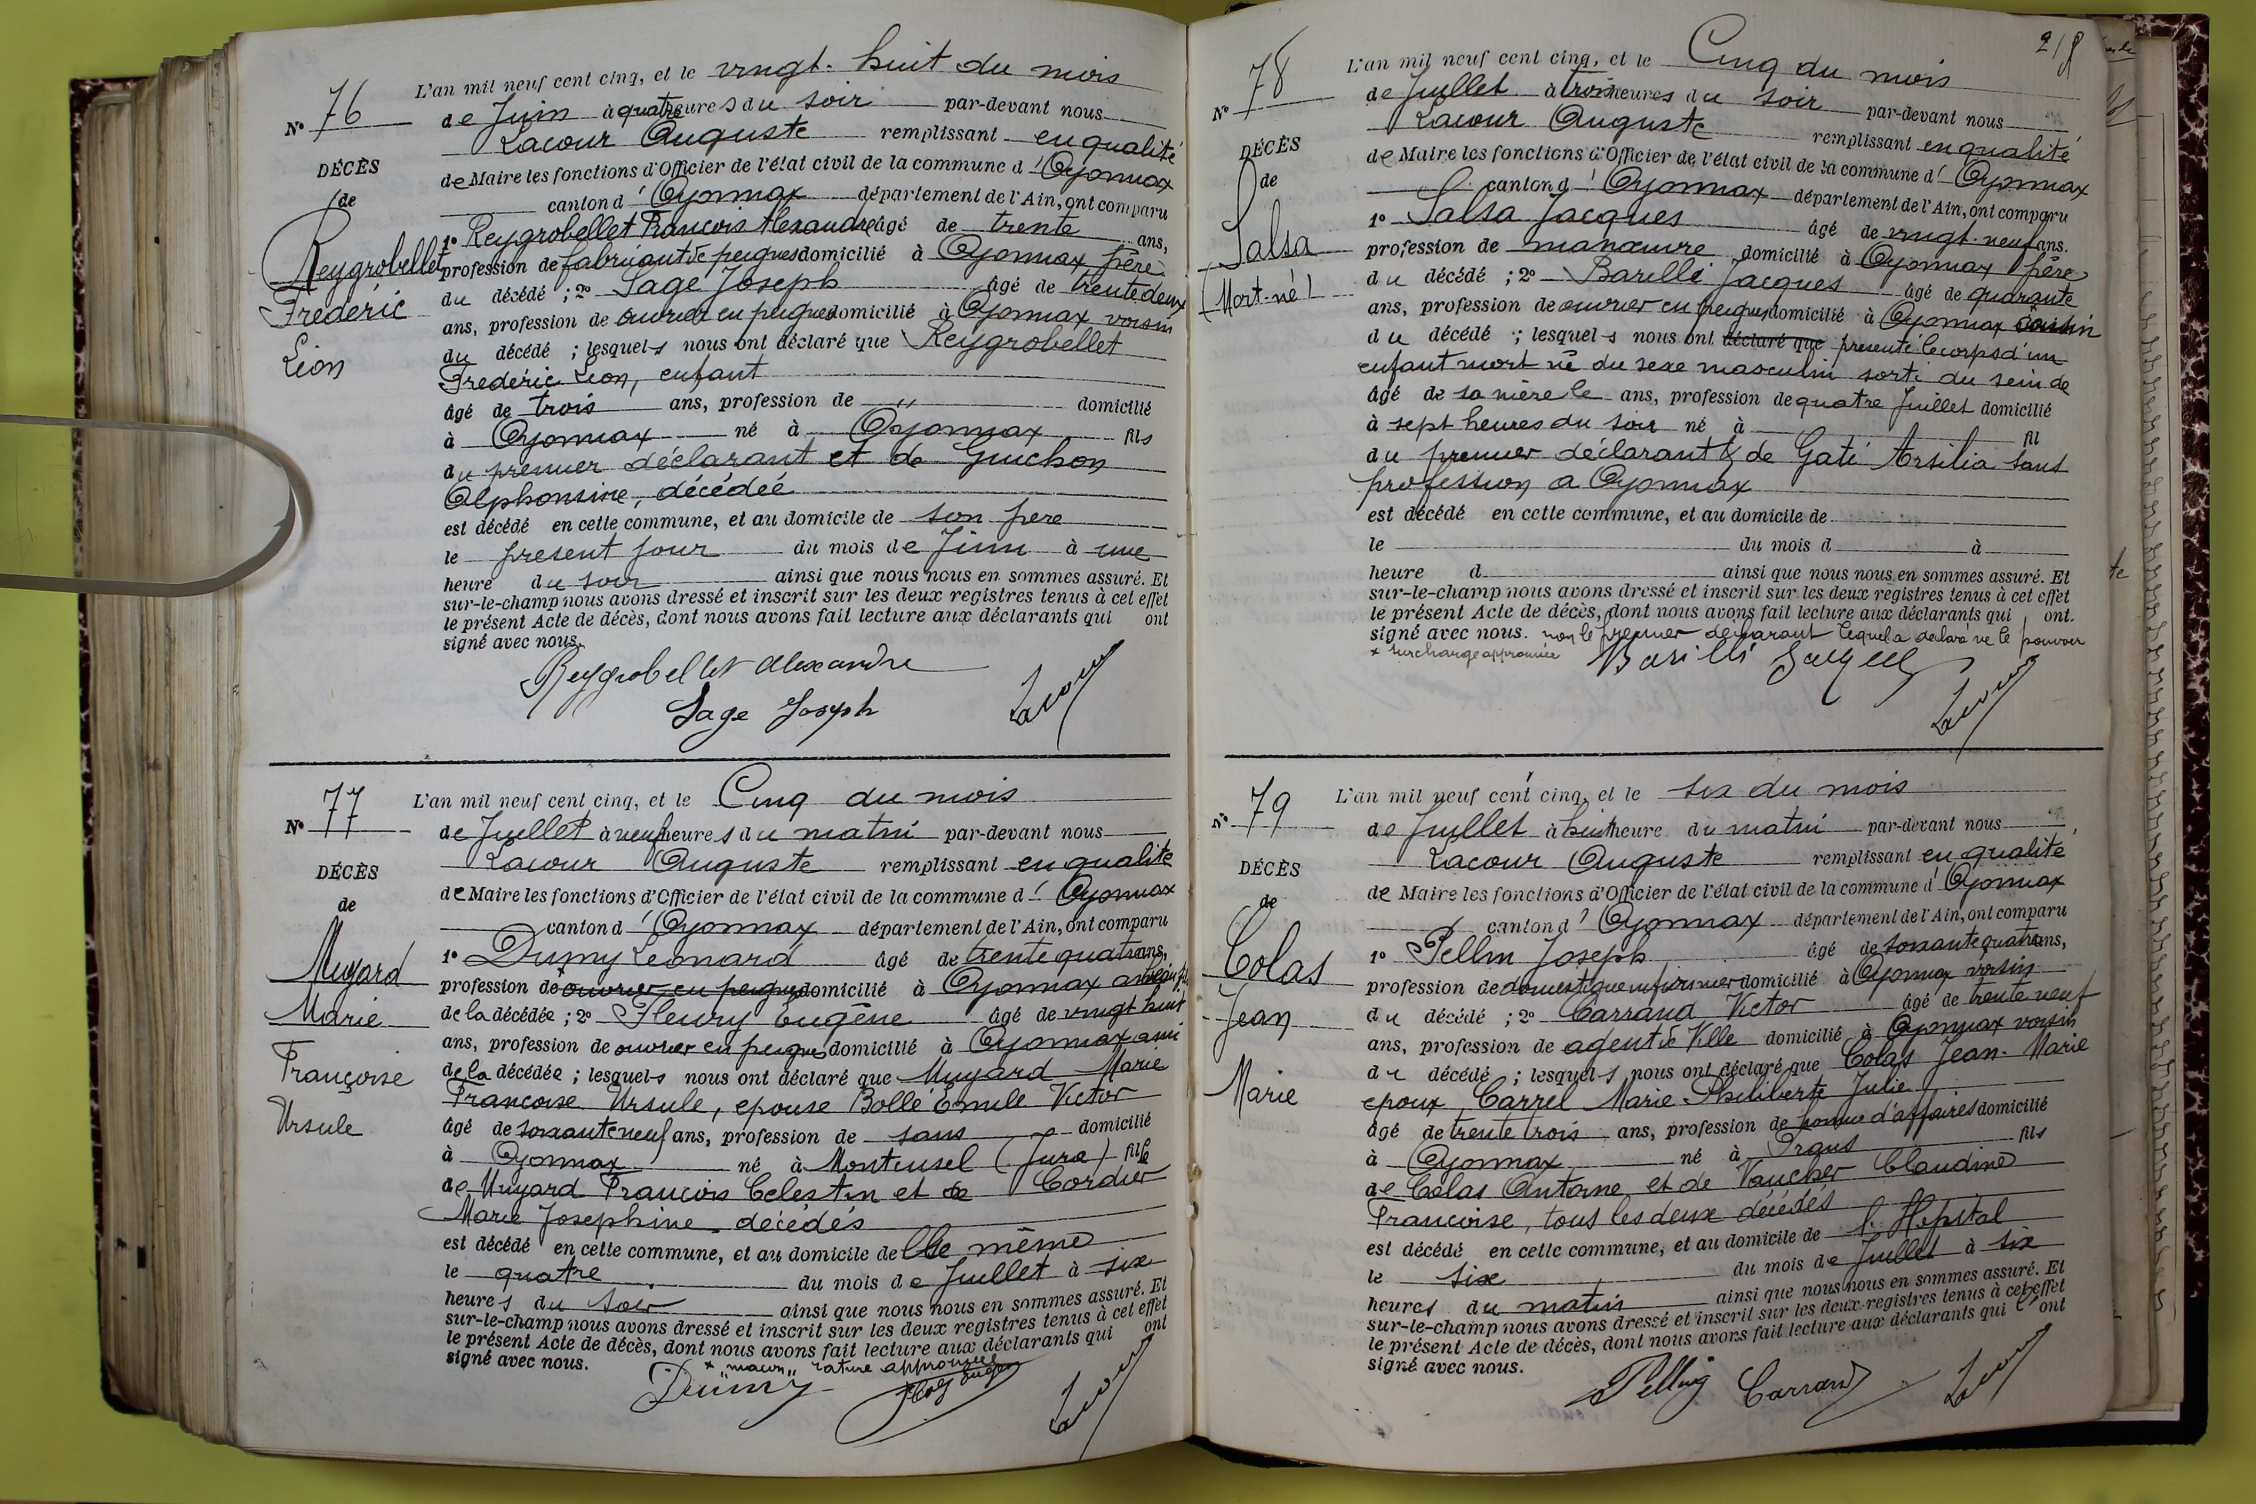 L'an mil neuf cent cinq, et le vingt-huit du mois
Nº 76
de Juin à quatre heures du soir par-devant nous
Lacour Auguste remplissant en qualité
DÉCÈS
de Maire les fonctions d'Officier de l'état civil de la commune d' Oyonnax
de
canton d' Oyonnax département de l'Ain, ont comparu
1º Reygrobellet François Alexandre âgé de trente ans,
Reygrobellet
profession de fabricant de peignes domicilié à Oyonnax père
du décédé ; 2º Sage Joseph âgé de trente deux
Frédéric
ans, profession de ouvrier en peignes domicilié à Oyonnax voisin
du décédé ; lesquels nous ont déclaré que Reygrobellet
Léon
Frédéric Léon, enfant
âgé de trois ans, profession de " domicilié
à Oyonnax né à Oyonnax fils
du premier déclarant et de Guichon
Alphonsine, décédée
est décédé en cette commune, et au domicile de son père
le présent jour du mois de Juin à une
heure du soir ainsi que nous nous en sommes assuré. Et
sur-le-champ nous avons dressé et inscrit sur les deux registres tenus à cet effet
le présent Acte de décès, dont nous avons fait lecture aux déclarants qui ont
signé avec nous.
Reygrobellet Alexandre
Sage Joseph
Lacour
77
L'an mil neuf cent cinq, et le Cinq du mois
Nº
de Juillet à neuf heures du matin par-devant nous
Lacour Auguste remplissant en qualité
DÉCÈS
de Maire les fonctions d'Officier de l'état civil de la commune d' Oyonnax
de
canton d' Oyonnax département de l'Ain, ont comparu
1º Dumy Léonard âgé de trente quatre ans,
Muyard
profession de ouvrier en peignes domicilié à Oyonnax
de la décédée ; 2º Fleury Eugène âgé de vingt huit
Marie
ans, profession de ouvrier en peignes domicilié à Oyonnax ami
Françoise
de la décédée ; lesquels nous ont déclaré que Muyard Marie
Françoise Ursule, epouse Bollé Emile Victor
Ursule
âgé de soixante neuf ans, profession de sans domicilié
à Oyonnax né à Montcusel (Jura) fille
de Muyard François Celestin et de Cordier
Marie Josephine décédés
est décédé en cette commune, et au domicile de Elle même
le quatre du mois de Juillet à six
heures du soir ainsi que nous nous en sommes assuré. Et
sur-le-champ nous avons dressé et inscrit sur les deux registres tenus à cet effet
le présent Acte de décès, dont nous avons fait lecture aux déclarants qui ont
signé avec nous.
× "maçon" rature approuvée
Dumy
Lacour
218
78
L'an mil neuf cent cinq, et le Cinq du mois
Nº
de Juillet à trois heures du soir par-devant nous
Lacour Auguste remplissant en qualité
DÉCÈS
de Maire les fonctions d'Officier de l'état civil de la commune d' Oyonnax
de
canton d' Oyonnax département de l'Ain, ont comparu
1º Salsa Jacques âgé de vingt-neuf ans.
Salsa
profession de manœuvre domicilié à Oyonnax père
(Mort-né)
du décédé ; 2º Barilli Jacques âgé de quarante
ans, profession de ouvrier en peignes domicilié à Oyonnax cousin
du décédé ; lesquels nous ont déclaré que présenté le corps d'un
enfant mort né du sexe masculin sorti du sein de
âgé de sa mère le ans, profession de quatre Juillet domicilié
à sept heures du soir né à fil
du premier déclarant & de Gati Arsilia sans
profession à Oyonnax
est décédé en cette commune, et au domicile de
le du mois d à
heure d ainsi que nous nous en sommes assuré. Et
sur-le-champ nous avons dressé et inscrit sur les deux registres tenus à cet effet
le présent Acte de décès, dont nous avons fait lecture aux déclarants qui ont.
signé avec nous. non le premier déclarant lequel a déclaré ne le pouvoir
× surcharge approuvée
Barilli
Lacour
79
L'an mil neuf cent cinq, et le six du mois
Nº
de Juillet à huit heure du matin par-devant nous
Lacour Auguste remplissant en qualité
DÉCÈS
de Maire les fonctions d'Officier de l'état civil de la commune d' Oyonnax
de
canton d' Oyonnax département de l'Ain, ont comparu
1º Pellin Joseph âgé de soixante quatre ans,
Colas
profession de domestique infirmier domicilié à Oyonnax voisin
Jean
du décédé ; 2º Carrand Victor âgé de trente neuf
ans, profession de agent de Ville domicilié à Oyonnax voisin
Marie
du décédé ; lesquels nous ont déclaré que Colas Jean-Marie
epoux Carrel Marie Philiberte Julie
âgé de trente trois ans, profession de homme d'affaires domicilié
à Oyonnax né à Prans fils
de Colas Antoine et de Vaucher Claudine
Françoise, tous les deux décédés
est décédé en cette commune, et au domicile de l'Hopital
le six du mois de Juillet à six
heures du matin ainsi que nous nous en sommes assuré. Et
sur-le-champ nous avons dressé et inscrit sur les deux registres tenus à cet effet
le présent Acte de décès, dont nous avons fait lecture aux déclarants qui ont
signé avec nous.
Pellin Carrand
Lacour